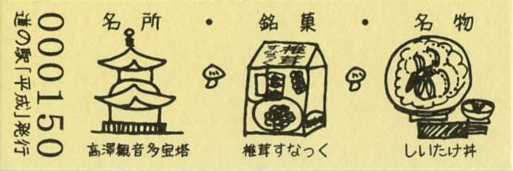 名所・銘菓・名物
椎茸
すなっく
高澤観音多宝塔
椎茸すなっく
しいたけ丼
000150
道の駅「平成」発行